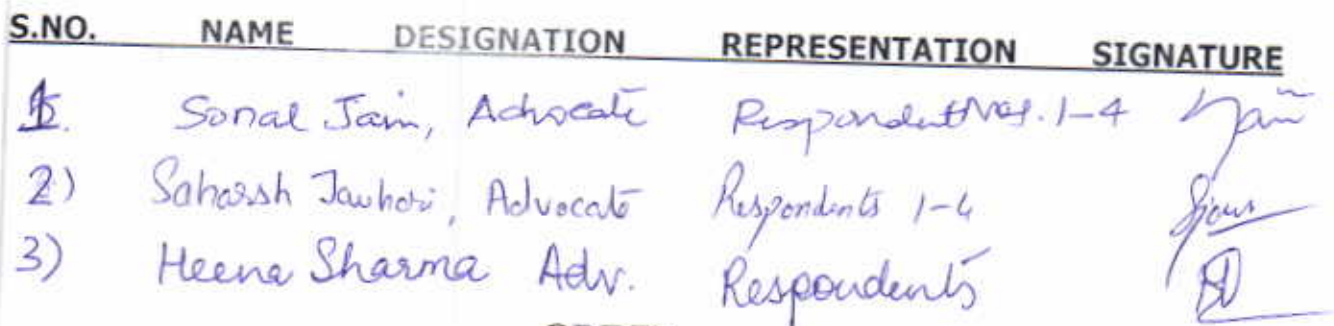 S.NO. NAME DESIGNATION REPRESENTATION SIGNATURE
1. Sonal Jain, Advocate Respondent Nos. 1-4 Jain
2) Saharsh Jauhari, Advocate Respondents 1-4
3) Heena Sharma Adv. Respondents